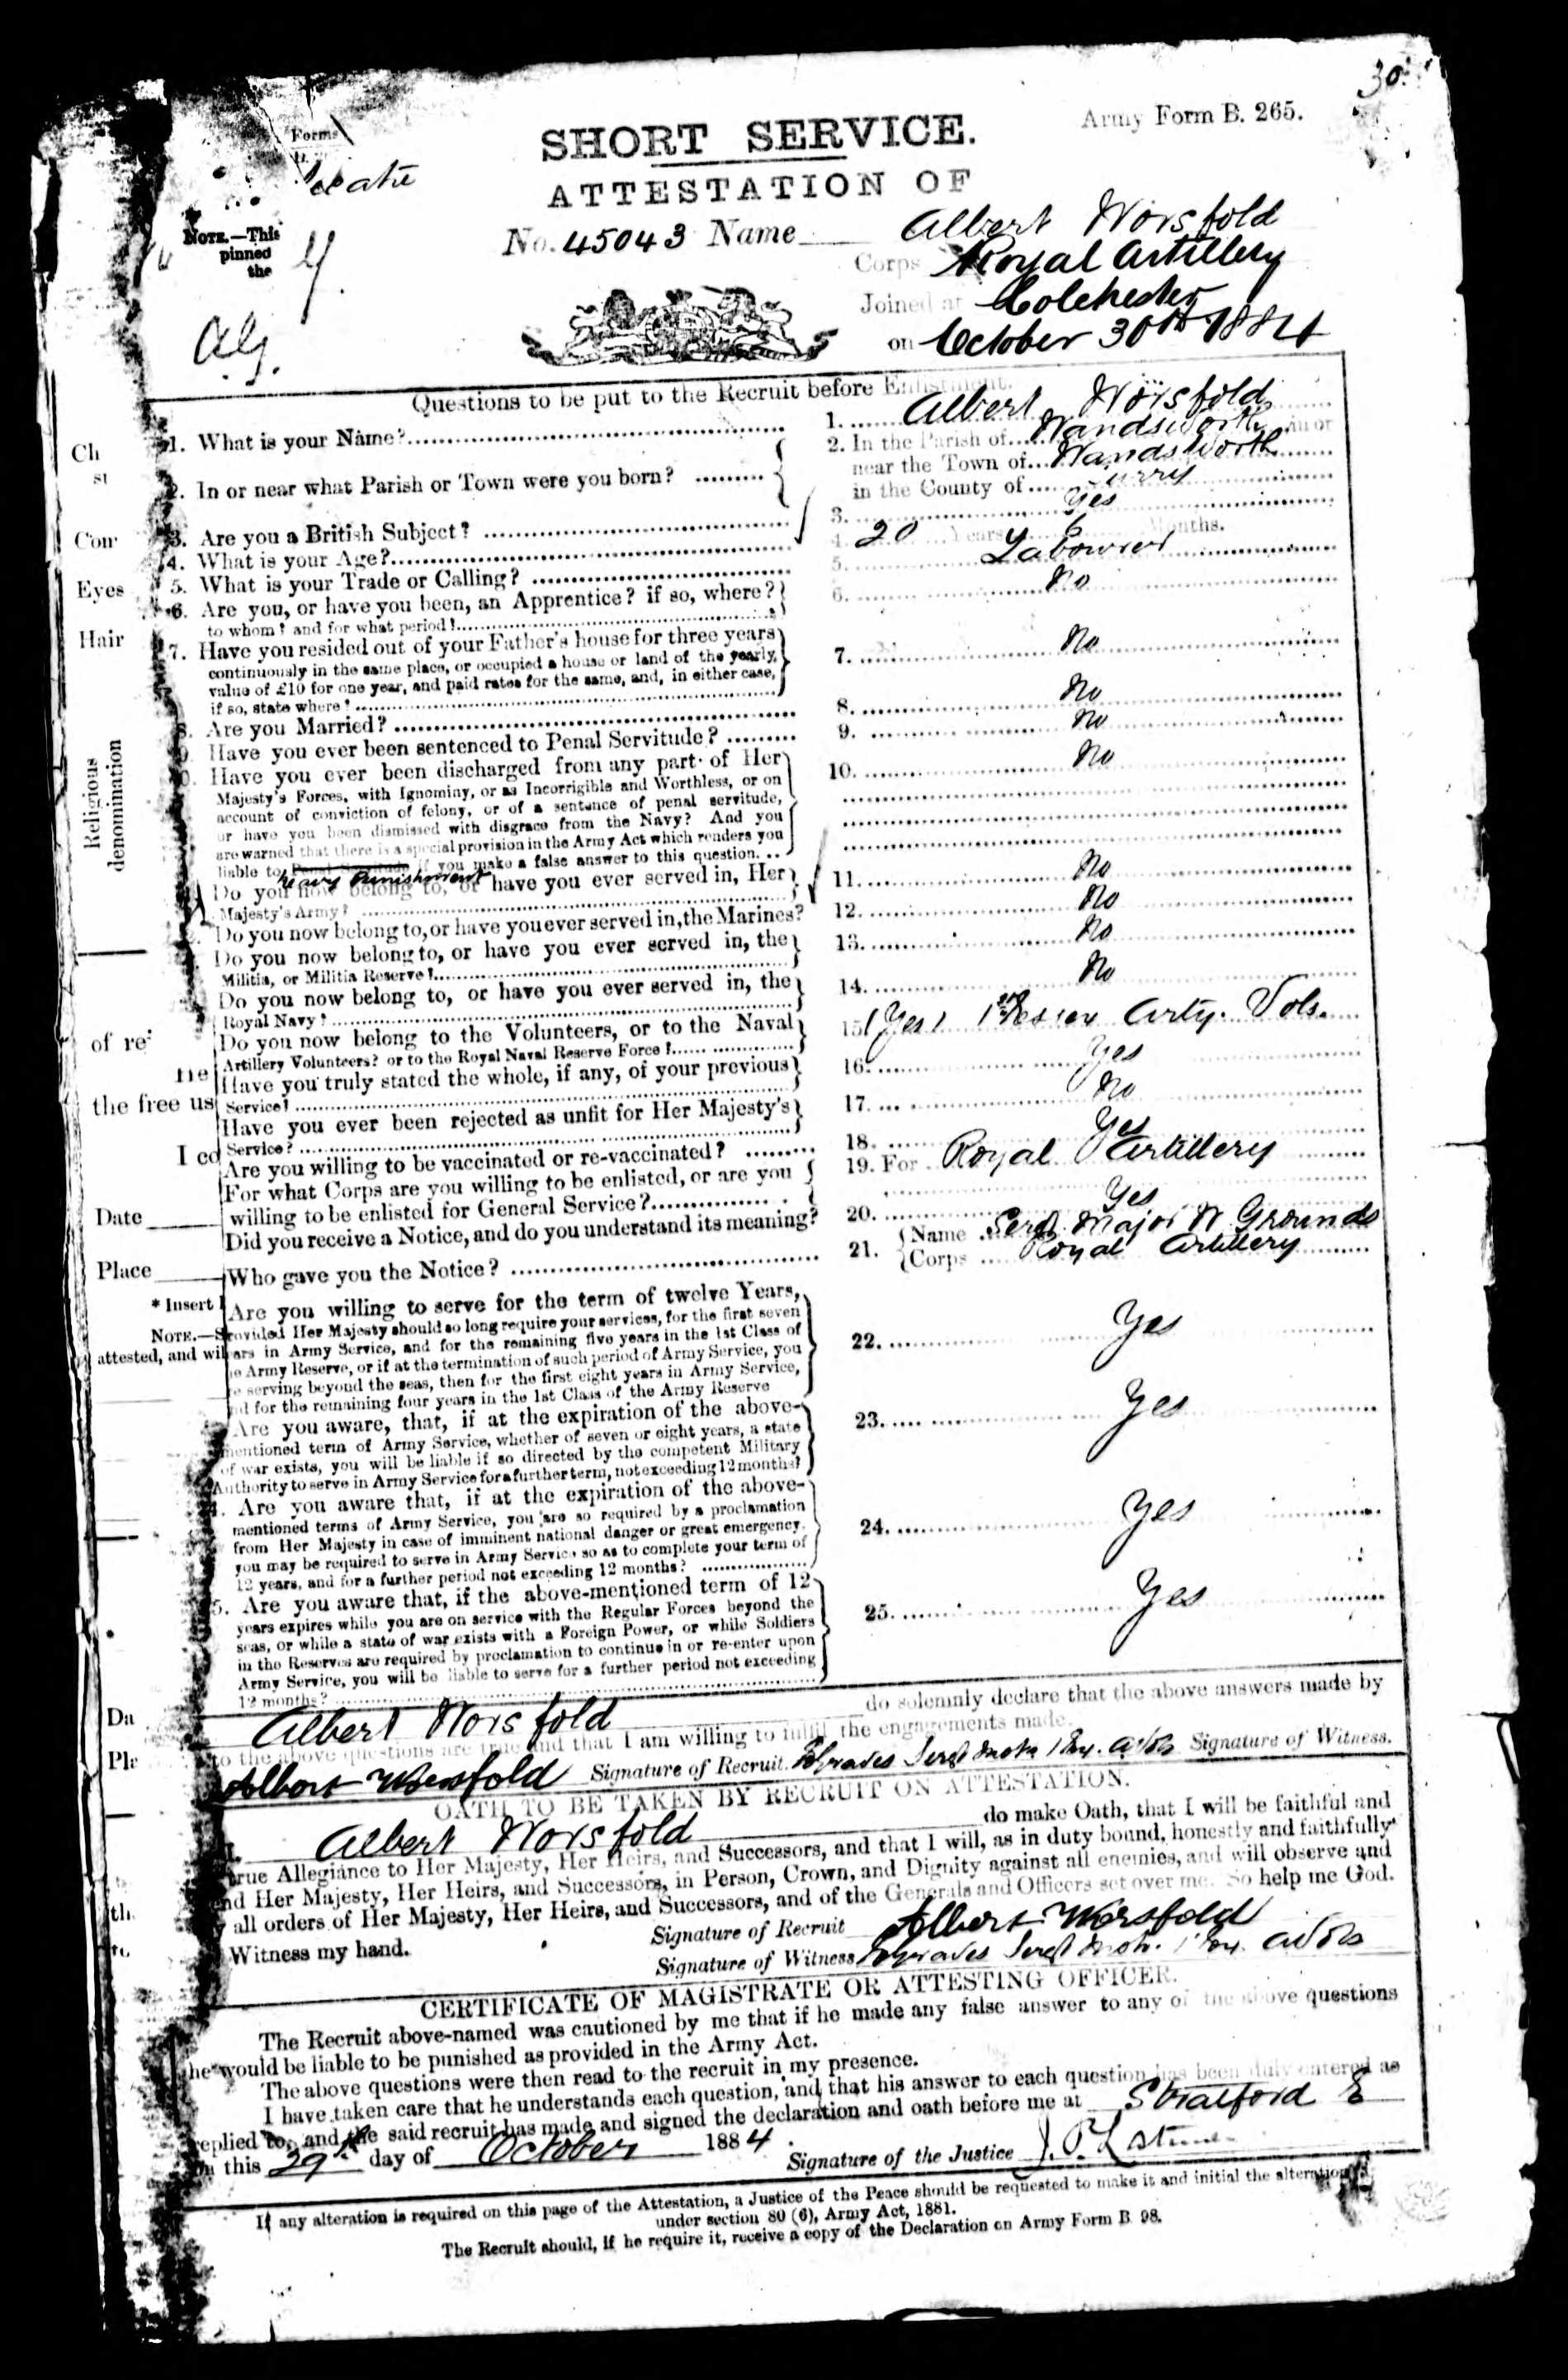 30
Army Form B. 265.
Forms
SHORT SERVICE.
ATTESTATION OF
NOTE.—This
pinned
the
No. 45043 Name Albert Worsfold
Corps Royal Artillery
Joined at Colchester
on October 30th 1884
Questions to be put to the Recruit before Enlistment.
1. What is your Name?
1. Albert Worsfold
2. In or near what Parish or Town were you born?
2. In the Parish of Wandsworth in or
near the Town of Wandsworth
in the County of Surry
3. Are you a British Subject?
3. Yes
4. What is your Age?
4. 20 Years 6 Months.
5. What is your Trade or Calling?
5. Labourer
6. Are you, or have you been, an Apprentice? if so, where?
to whom? and for what period?
6. No
7. Have you resided out of your Father's house for three years
continuously in the same place, or occupied a house or land of the yearly
value of £10 for one year, and paid rates for the same, and, in either case,
if so, state where?
7. No
8. Are you Married?
8. No
9. Have you ever been sentenced to Penal Servitude?
9. No
0. Have you ever been discharged from any part of Her
Majesty's Forces, with Ignominy, or as Incorrigible and Worthless, or on
account of conviction of felony, or of a sentence of penal servitude,
or have you been dismissed with disgrace from the Navy? And you
are warned that there is a special provision in the Army Act which renders you
liable to Penal Servitude if you make a false answer to this question.
heavy Punishment
10. No
Do you now belong to, or have you ever served in, Her
Majesty's Army?
11. No
Do you now belong to, or have you ever served in, the Marines?
12. No
Do you now belong to, or have you ever served in, the
Militia, or Militia Reserve?
13. No
Do you now belong to, or have you ever served in, the
Royal Navy?
14. No
Do you now belong to the Volunteers, or to the Naval
Artillery Volunteers? or to the Royal Naval Reserve Force?
15. (Yes) 1st Essex Arty. Vols.
Have you truly stated the whole, if any, of your previous
Service?
16. Yes
Have you ever been rejected as unfit for Her Majesty's
Service?
17. No
Are you willing to be vaccinated or re-vaccinated?
18. Yes
For what Corps are you willing to be enlisted, or are you
willing to be enlisted for General Service?
19. For Royal Artillery
Did you receive a Notice, and do you understand its meaning?
20. Yes
Who gave you the Notice?
21. Name Sergt Major W Grounds
Corps Royal Artillery
Are you willing to serve for the term of twelve Years,
provided Her Majesty should so long require your services, for the first seven
years in Army Service, and for the remaining five years in the 1st Class of
the Army Reserve, or if at the termination of such period of Army Service, you
be serving beyond the seas, then for the first eight years in Army Service,
and for the remaining four years in the 1st Class of the Army Reserve
22. Yes
Are you aware, that, if at the expiration of the above-
mentioned term of Army Service, whether of seven or eight years, a state
of war exists, you will be liable if so directed by the competent Military
Authority to serve in Army Service for a further term, not exceeding 12 months?
23. Yes
4. Are you aware that, if at the expiration of the above-
mentioned terms of Army Service, you are so required by a proclamation
from Her Majesty in case of imminent national danger or great emergency,
you may be required to serve in Army Service so as to complete your term of
12 years, and for a further period not exceeding 12 months?
24. Yes
5. Are you aware that, if the above-mentioned term of 12
years expires while you are on service with the Regular Forces beyond the
seas, or while a state of war exists with a Foreign Power, or while Soldiers
in the Reserves are required by proclamation to continue in or re-enter upon
Army Service, you will be liable to serve for a further period not exceeding
12 months?
25. Yes
Ch
st
Con
Eyes
Hair
Religious
denomination
of re
he
the free us
I ce
Date
Place
* Insert
NOTE.—S
attested, and wil
Da
Pla
Albert Worsfold do solemnly declare that the above answers made by
to the above questions are true and that I am willing to fulfil the engagements made.
Albert Worsfold Signature of Recruit. Signature of Witness.
OATH TO BE TAKEN BY RECRUIT ON ATTESTATION.
I. Albert Worsfold do make Oath, that I will be faithful and
true Allegiance to Her Majesty, Her Heirs, and Successors, and that I will, as in duty bound, honestly and faithfully
end Her Majesty, Her Heirs, and Successors, in Person, Crown, and Dignity against all enemies, and will observe and
y all orders of Her Majesty, Her Heirs, and Successors, and of the Generals and Officers set over me. So help me God.
Witness my hand.
Signature of Recruit Albert Worsfold
Signature of Witness
CERTIFICATE OF MAGISTRATE OR ATTESTING OFFICER.
The Recruit above-named was cautioned by me that if he made any false answer to any of the above questions
he would be liable to be punished as provided in the Army Act.
The above questions were then read to the recruit in my presence.
I have taken care that he understands each question, and that his answer to each question has been duly entered as
replied to, and the said recruit has made and signed the declaration and oath before me at Stratford E
on this 29th day of October 1884.
Signature of the Justice
If any alteration is required on this page of the Attestation, a Justice of the Peace should be requested to make it and initial the alteration
under section 80 (6), Army Act, 1881.
The Recruit should, if he require it, receive a copy of the Declaration on Army Form B. 98.